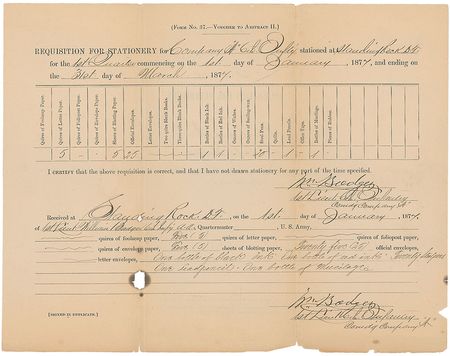 (Form No. 37.—Voucher to Abstract H.)
Requisition for Stationery for Company "A" 6th Infty stationed at Standing Rock D.T.
for the 1st Quarter commencing on the 1st day of January , 1877, and ending on
the 31st day of March , 1877.
Quires of Foolscap Paper.
Quires of Letter Paper.
Quires of Foliopost Paper.
Quires of Envelope Paper.
Sheets of Blotting Paper.
Official Envelopes.
Letter Envelopes.
Two-quire Blank Books.
Three-quire Blank Books.
Bottles of Black Ink.
Bottles of Red Ink.
Ounces of Wafers.
Ounces of Sealing-wax.
Steel Pens.
Quills.
Lead Pencils.
Office Tape.
Bottles of Mucilage.
Pieces of Rubber.
5 5 25 1 1 20 1 1
I certify that the above requisition is correct, and that I have not drawn stationery for any part of the time specified.
Wm. Badger
1st Lieut 6th Infantry
Comdg Company "A"
Received at Standing Rock D.T. , on the 1st. day of January , 1877,
of 1st Lieut William Badger 6th Infty A.A. Quartermaster , U. S. Army,
quires of foolscap paper, Five (5) quires of letter paper, quires of foliopost paper,
quires of envelope paper, Five (5) sheets of blotting paper, Twenty five (25) official envelopes,
letter envelopes, One bottle of black ink One bottle of red ink Twenty
One One bottle of Mucilage.
Wm. Badger
1st Lieut 6th Infantry
Comdg Company "A"
[SIGNED IN DUPLICATE.]